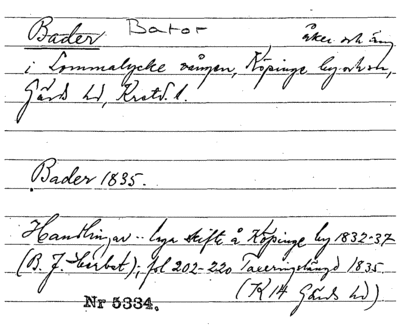 Bader Bator åker och äng
i Lommalycke vången, Köpinge by och sn,
Gärds hd, Krstd. l.
Bader 1835.
Handlingar .. laga skifte å Köpinge by 1832-37
(B. J. ); fol 202-220 Taxeringslängd 1835
(K 14 Gärds hd)
Nr 5334.